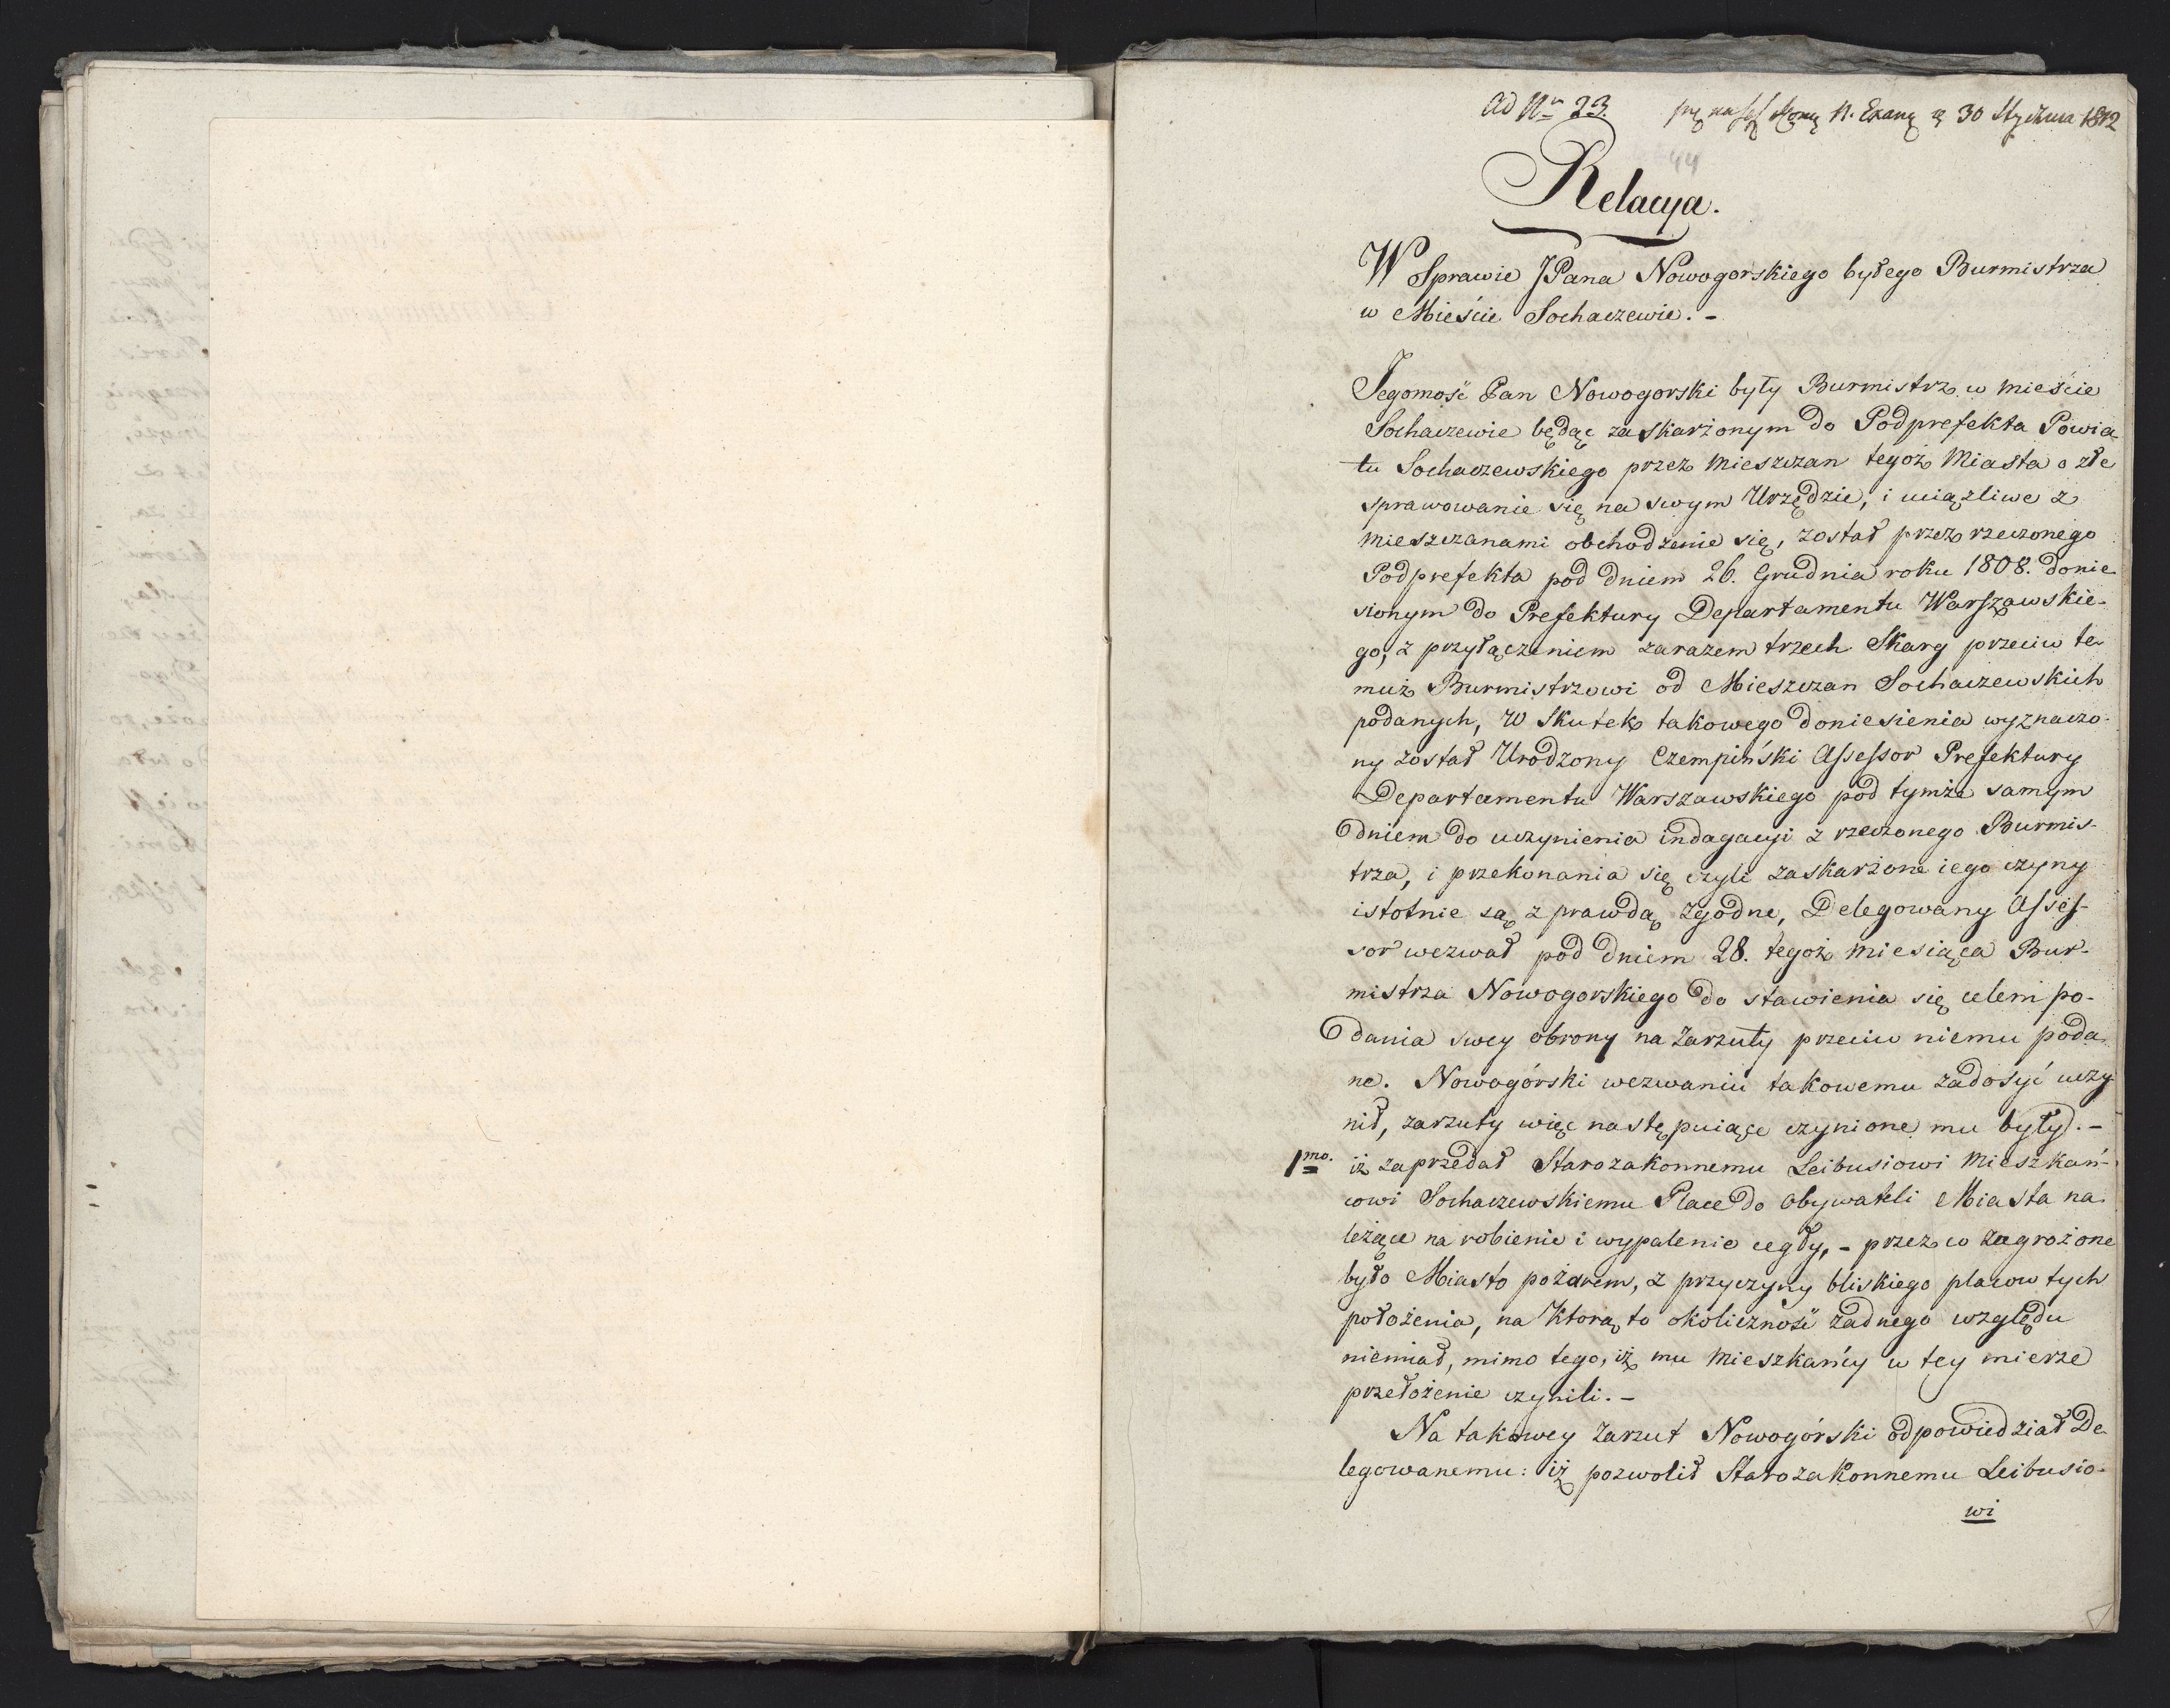 Ad Nr 23. 30 Stycznia 1812
44
Relacya.
W Sprawie JPana Nowogorskiego byłego Burmistrza
w Mieście Sochaczewie. -
Jegomość Pan Nowogorski były Burmistrz w mieście
Sochaczewie będąc zaskarżonym do Podprefekta Powia-
tu Sochaczewskiego przez Mieszczan tegoż Miasta o złe
sprawowanie się na swym Urzędzie, i uciążliwe z
mieszczanami obchodzenie się, został przez rzeczonego
Podprefekta pod dniem 26. Grudnia roku 1808. donie
sionym do Prefektury Departamentu Warszawskie-
go, z przyłączeniem zarazem trzech Skarg przeciw te-
muż Burmistrzowi od Mieszczan Sochaczewskich
podanych, w Skutek takowego doniesienia wyznaczo-
ny został Urodzony Czempiński Assessor Prefektury
Departamentu Warszawskiego pod tymże samym
dniem do uczynienia indagacyi z rzeczonego Burmis-
trza, i przekonania się czyli zaskarżone iego czyny
istotnie są z prawdą zgodne, Delegowany Asses-
sor wezwał pod dniem 28. tegoż Miesiąca Bur-
mistrza Nowogorskiego do stawienia się celem po-
dania swey obrony na Zarzuty przeciw niemu poda-
ne. Nowogórski wezwaniu takowemu zadosyć uczy
nił, zarzuty więc następuiące czynione mu były. -
1mo. iż zaprzedał Starozakonnemu Leibusiowi Mieszkań-
cowi Sochaczewskiemu Place do Obywateli Miasta na-
leżące na robienie i wypalenie cegły, - przez co zagrożone
było Miasto pożarem, z przyczyny bliskiego placow tych
położenia, na Ktorą to okoliczność żadnego względu
niemiał, mimo tego, iż mu Mieszkańcy w tey mierze
przełożenie czynili. -
Na takowey Zarzut Nowogórski odpowiedział De-
legowanemu: iż pozwolił Starozakonnemu Leibusio-
wi